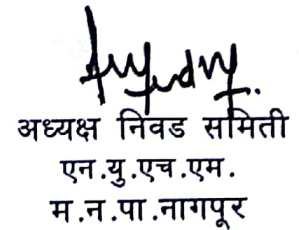 अध्यक्ष निवड समिती
एन.यु.एच.एम.
म.न.पा.नागपूर